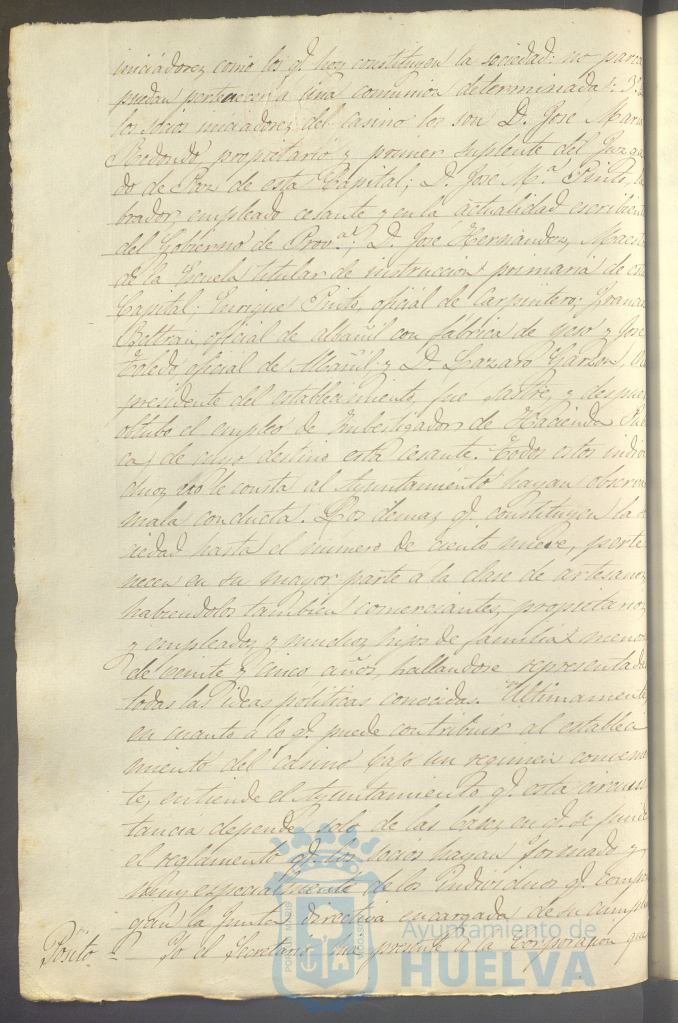 iniciadores como los q.e hoy constituyen la sociedad: no parece
puedan pertenecer a una comunion determinada: 3.º
los socios iniciadores del casino lo son D. Jose Maria
Redondo, propietario y primer suplente del Juzga
do de Paz de esta Capital; D. Jose M.ª Pinto, la
brador, empleado cesante y en la actualidad escribiente
del Gobierno de Prov.ª; D. José Hernandez, Maestro
de la Escuela titular de instruccion primaria de esta
Capital; Enrique Pinto, oficial de Carpintero; Francisco
Beltran, oficial de albañil con fábrica de yeso y José
Toledo oficial de Albañil y D. Lazaro Garzon,
presidente del establecimiento, fué sastre, y despues
obtubo el empleo de Imbestigador de Hacienda Públi
ca, de cuyo destino está cesante. Todos estos indivi
duos no le consta al Ayuntamiento hayan observado
mala conducta. Los demas q.e constituyen la so
ciedad hasta el número de ciento nueve, perte
necen en su mayor parte a la clase de artesanos,
habiendolos tambien comerciantes, propietarios
y empleados y muchos hijos de familia menores
de veinte y cinco años, hallandose representadas
todas las ideas politicas conocidas. Ultimamente,
en cuanto á lo q.e puede contribuir al estableci
miento del casino bajo un regimen convenien
te, entiende el Ayuntamiento q.e esta circuns
tancia depende solo de las bases en q.e se funde
el reglamento q.e los socios hayan formado y
muy especialmente de los individuos q.e compon
gan la Junta directiva encargada de su cumpli
Pósito = Yo el Secretario hice presente a la Corporacion que
Ayuntamiento de
HUELVA